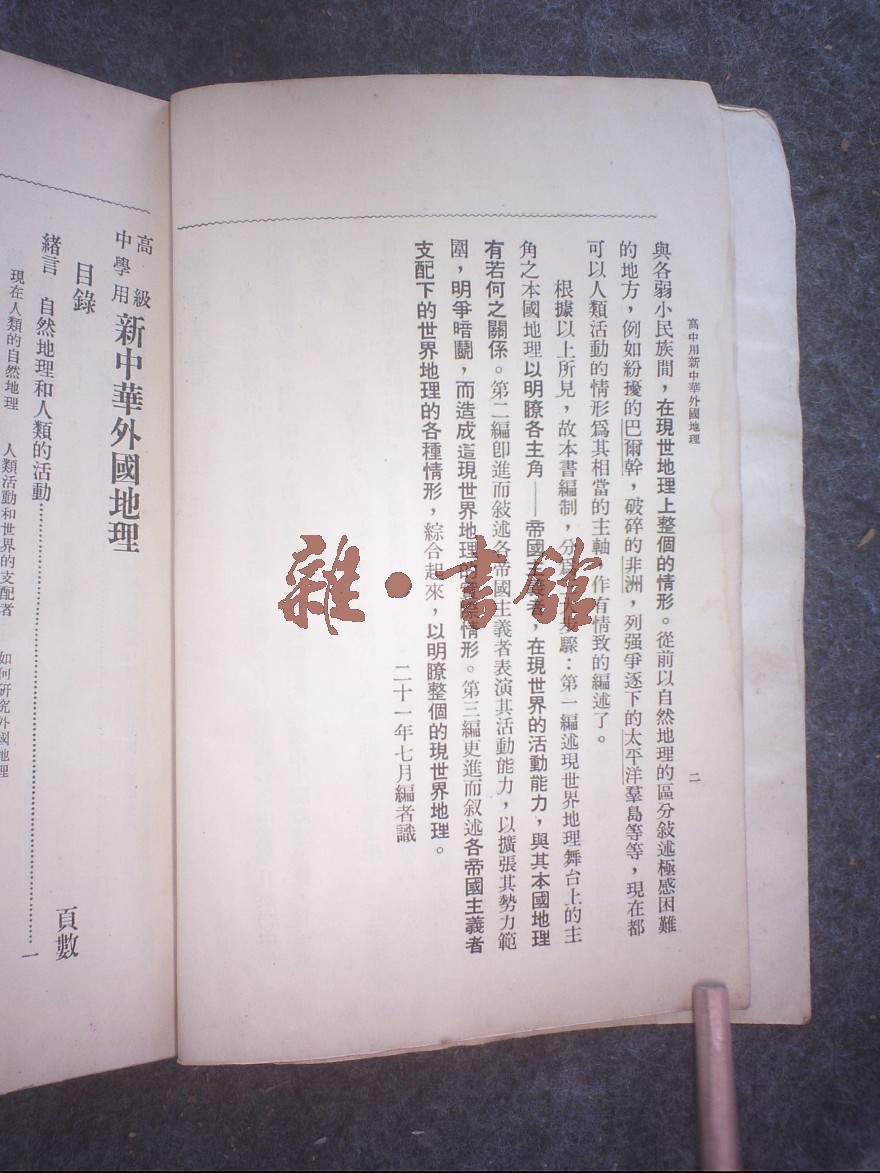 高中用新中華外國地理
二
與各弱小民族間，在現世地理上整個的情形。從前以自然地理的區分敍述極感困難
的地方，例如紛擾的巴爾幹，破碎的非洲，列强爭逐下的太平洋羣島等等，現在都
可以人類活動的情形爲其相當的主軸，作有情致的編述了。
根據以上所見，故本書編制，分爲大步驟：第一編述現世界地理舞台上的主
角之本國地理以明瞭各主角——帝國主義者，在現世界的活動能力，與其本國地理
有若何之關係。第二編卽進而敍述各帝國主義者表演其活動能力，以擴張其勢力範
圍，明爭暗鬭，而造成這現世界地理的實際情形。第三編更進而叙述各帝國主義者
支配下的世界地理的各種情形，綜合起來，以明瞭整個的現世界地理。
二十一年七月編者識
高級
中學用
新中華外國地理
目錄
頁數
緒言 自然地理和人類的活動……………………一
現在人類的自然地理 人類活動和世界的支配者 如何研究外國地理
雜·書館